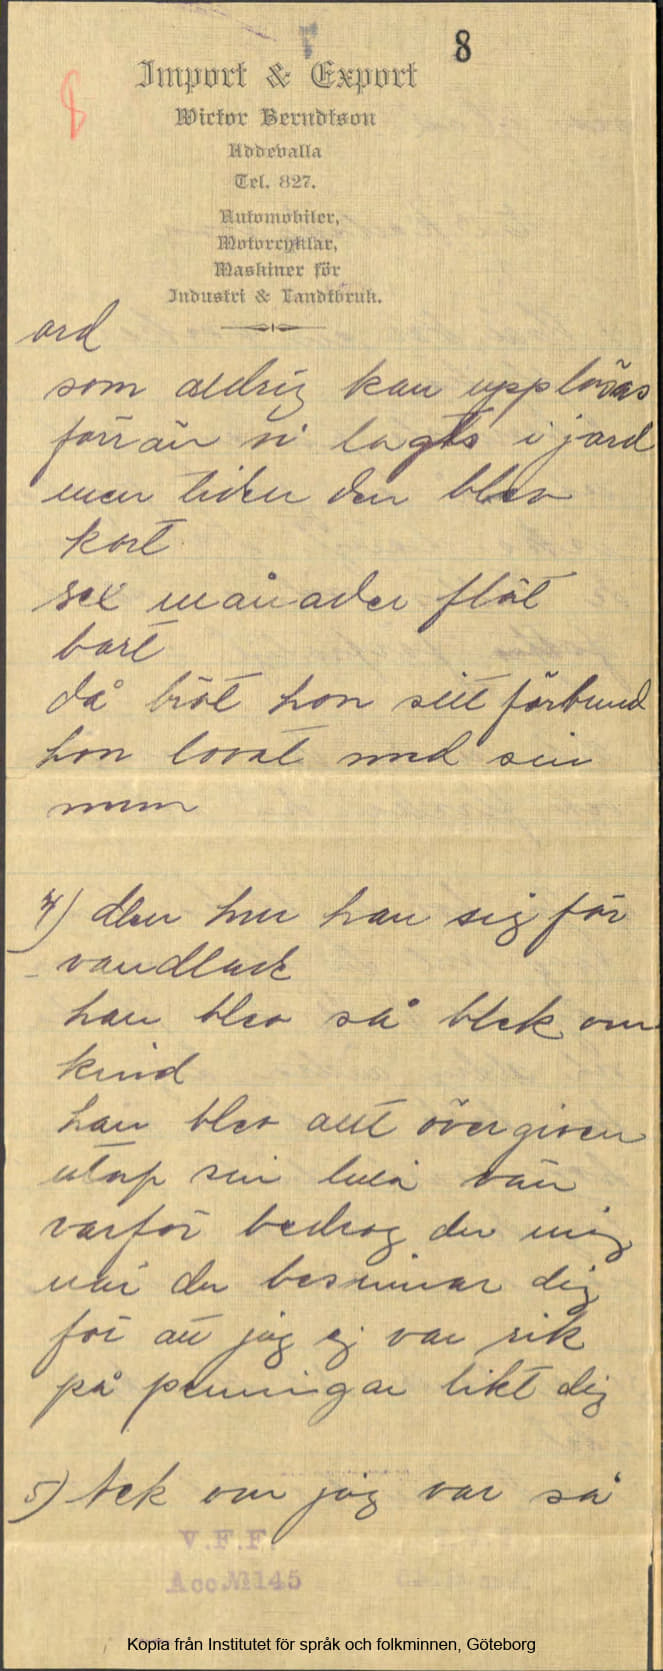 8
8
Import & Export
Wictor Berndtson
Uddevalla
Tel. 827.
Automobiler,
Motorcyklar,
Maskiner för
Industri & Landtbruk.
ord
som aldrig kan upplösas
förr än vi lagts i jord
men tiden den blev
kort
sex månader flöt
bort
då bröt hon sitt förbund
hon lovat med sin
mun
4) den hur han sig för
vandlade
han blev så blek om
kind
han blev allt övergiven
utaf sin lilla vän
varför bedrog du mig
när du besinnar dig
för att jag ej var rik
på penningar likt dig
5) Ack om jag var så
V.F.F.
Acc.№145
Kopia från Institutet för språk och folkminnen, Göteborg